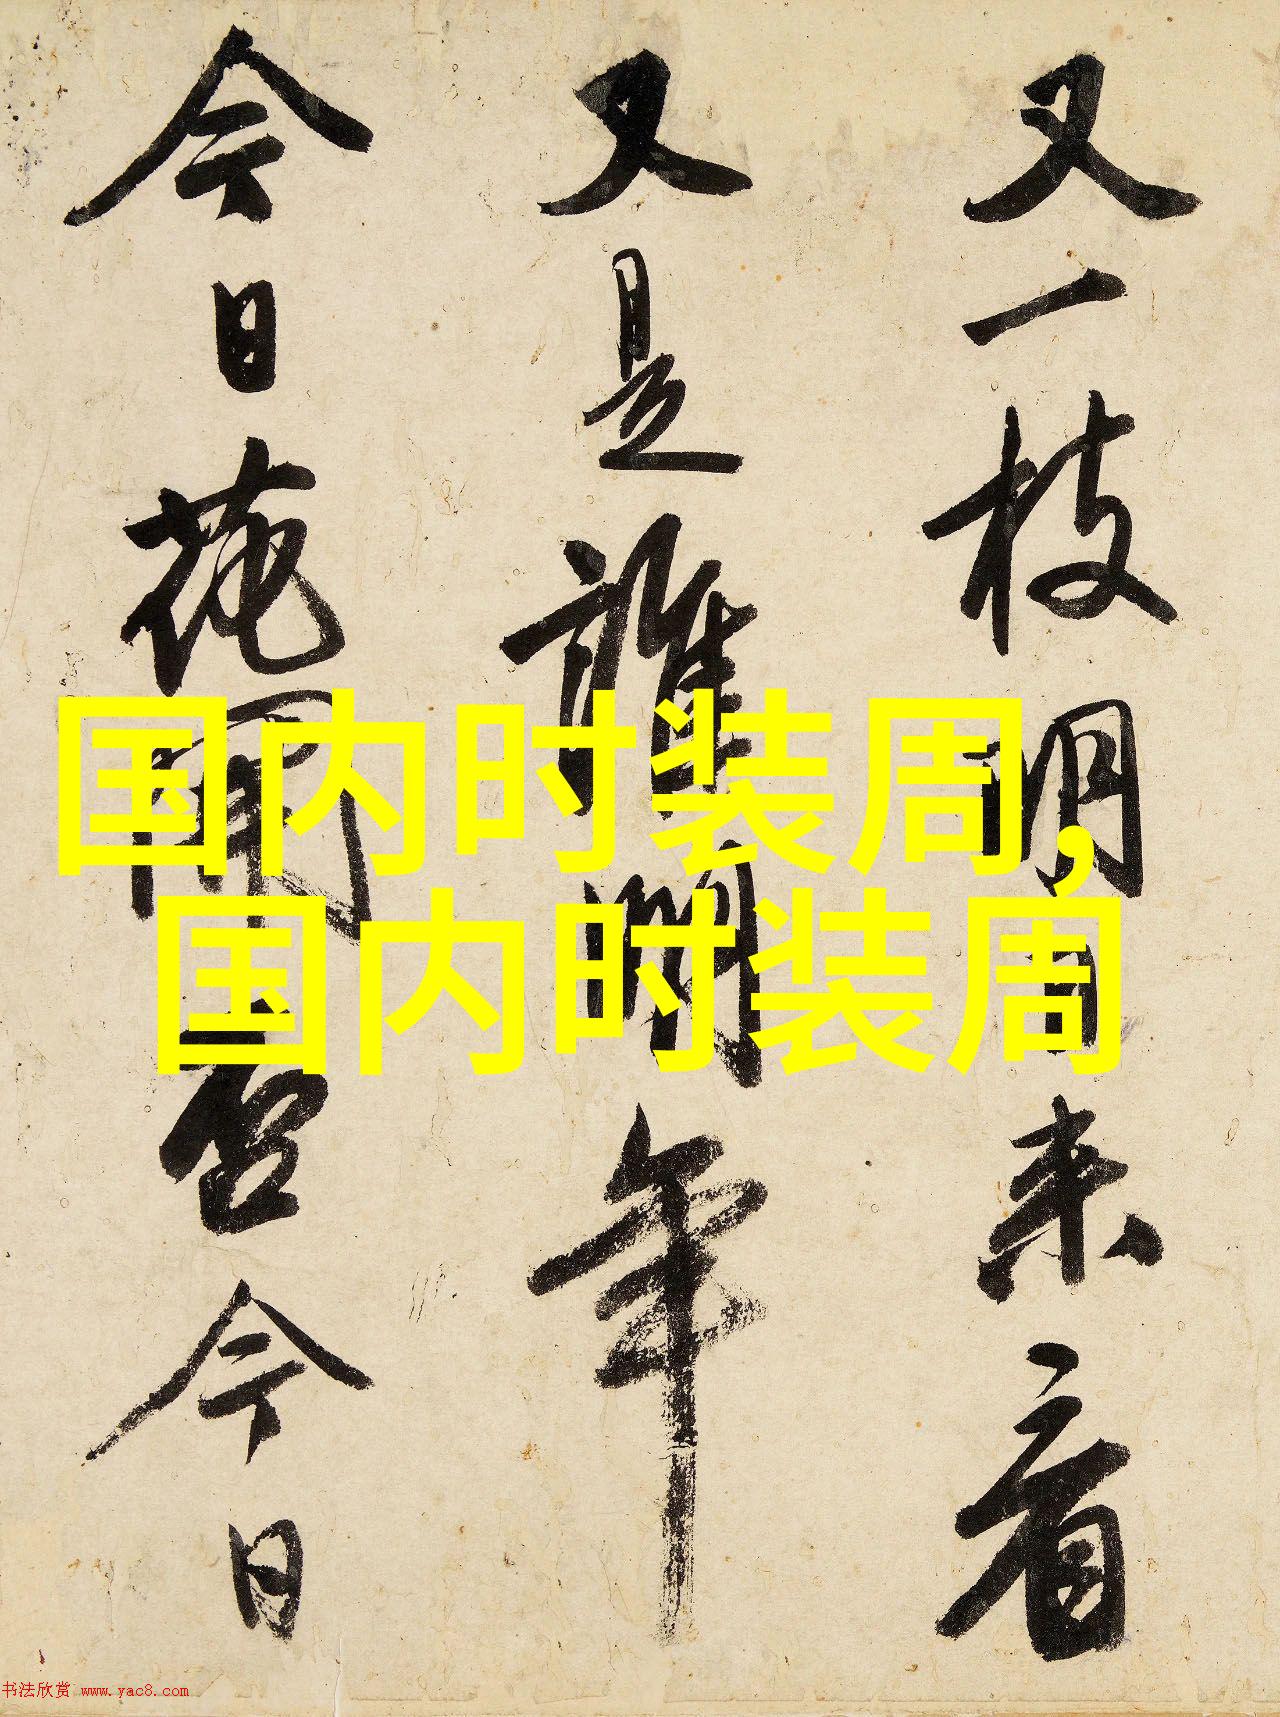 又一枝明日来看
又是誰明年
今日花開否今日
国内时装周,
国内时装周
书法欣赏 www.yac8.com